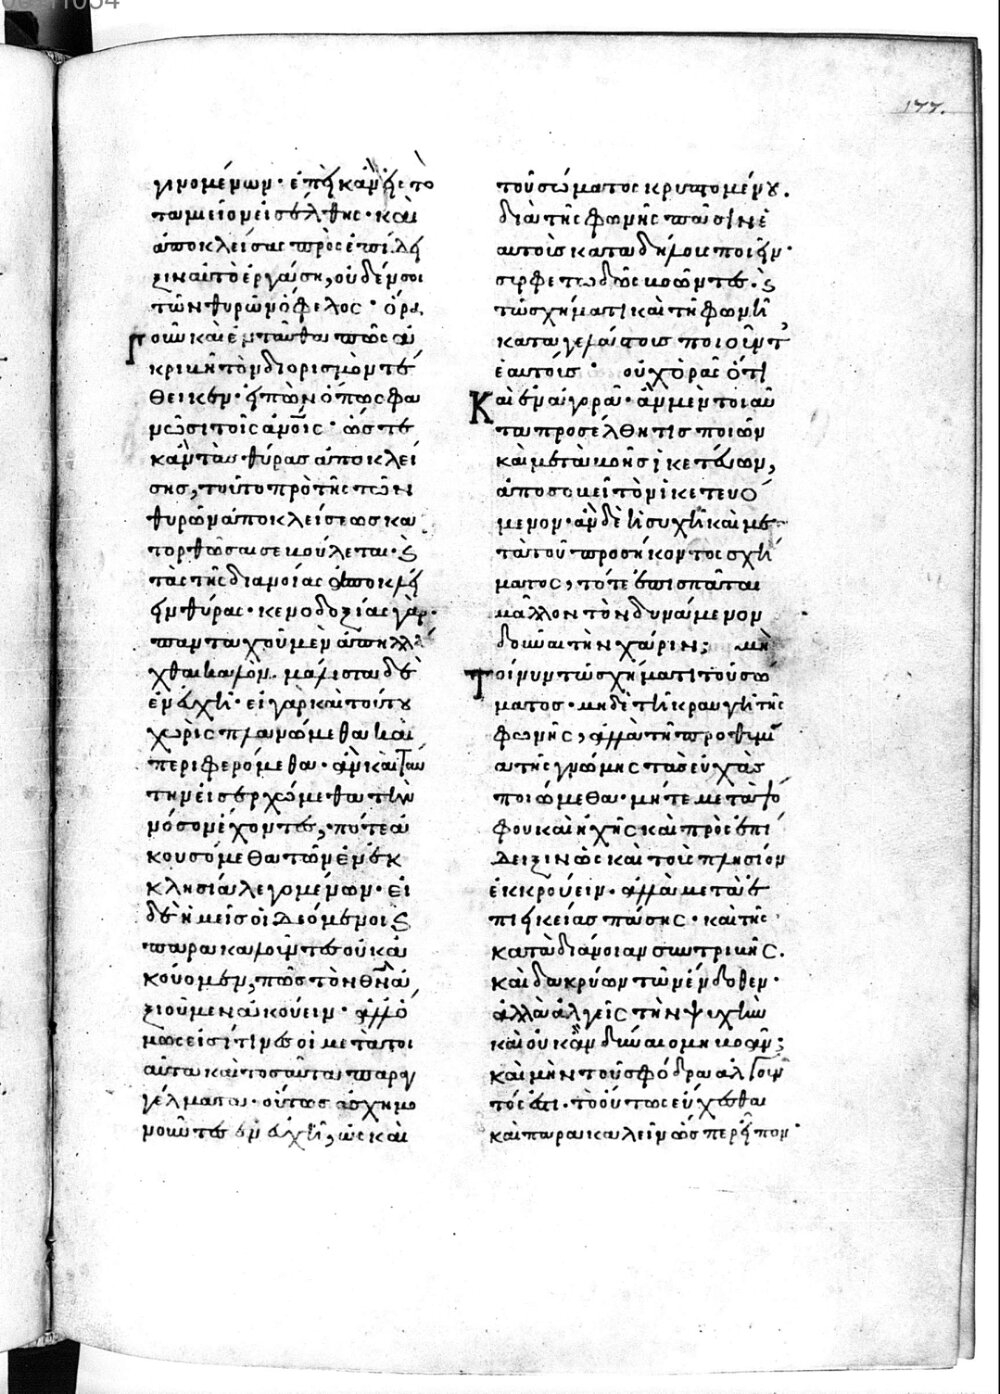 177.
γινομένων· ἐπεὶ κἂν εἰς τὸ
ταμιεῖον εἰσέλθης· καὶ
ἀποκλείσας πρὸς ἐπίδει
ξιν αὐτὸ ἐργάση, οὐδέν σοι
τῶν θυρῶν ὄφελος· ὅρα
γοῦν καὶ ἐνταῦθα πῶς ἀ
κριβῆ τὸν διορισμὸν τέ
θεικεν· εἰπὼν ὅπως φα
νῶσι τοῖς ἀνοις· ὥστε
κἂν τὰς θύρας ἀποκλεί
σης, τοῦτο πρὸ τῆς τῶν
θυρῶν ἀποκλείσεως κα
τορθῶσαί σε βούλεται· καὶ
τὰς τῆς διανοίας ἀποκλεί
ειν θύρας· κενοδοξίας γὰρ
πανταχοῦ μὲν ἀπηλλά
χθαι καλὸν· μάλιστα δὲ
ἐν εὐχῆ· εἰ γὰρ καὶ τούτου
χωρὶς πλανώμεθα καὶ
περιφερόμεθα· ἂν καὶ ταύ
την εἰσερχώμεθα τὴν
νόσον ἔχοντες, πότε ἀ
κουσόμεθα τῶν ἐν ἐκ
κλησία λεγομένων· εἰ
δὲ ἡμεῖς οἱ δεόμενοι καὶ
παρακαλοῦντες οὐκ ἀ
κούομεν, πῶς τὸν θν ἀ
ξιοῦμεν ἀκούειν· ἀλλ' ὅ
μως εἰσί τινες οἱ μετὰ τοι
αῦτα καὶ τοσαῦτα παραγ
γέλματα· οὕτως ἀσχημο
νοῦντες ἐν εὐχῆ, ὡς καὶ
τοῦ σώματος κρυπτομένου.
διὰ τῆς φωνῆς πᾶσιν ἑ
αυτοὺς καταδήλους ποιεῖν·
συρφετωδῶς βοῶντες· καὶ
τῶ σχήματι καὶ τῆ φωνῆ
καταγελάστους ποιοῦντες
ἑαυτούς· οὐχ ὁρᾶς ὅτι
Καὶ ἐν ἀγορᾶ· ἂν μὲν τοιαῦ
τα προσέλθη τις ποιῶν
καὶ μετὰ βοῆς ἱκετεύων,
ἀποσοβεῖ τὸν ἱκετευό
μενον· ἂν δὲ ἡσυχῆ καὶ με
τὰ τοῦ προσήκοντος σχή
ματος, τότε ἐπισπᾶται
μᾶλλον τὸν δυνάμενον
δοῦναι τὴν χάριν; μὴ
τοίνυν τῶ σχήματι τοῦ σώ
ματος· μηδὲ τῆ κραυγῆ τῆς
φωνῆς, ἀλλὰ τῆ προθυμί
α τῆς γνώμης τὰς εὐχὰς
ποιώμεθα· μήτε μετὰ ψό
φου καὶ ἠχῆς καὶ πρὸς ἐπί
δειξιν ὡς καὶ τοὺς πλησίον
ἐκκρούειν· ἀλλὰ μετὰ ἐ
πιεικείας πάσης· καὶ τῆς
κατὰ διάνοιαν συντριβῆς.
καὶ δακρύων τῶν ἔνδοθεν·
ἀλλὰ ἀλγεῖς τὴν ψυχὴν
καὶ οὐκ ἂν δύναιο μὴ βοᾶν;
καὶ μὴν τοῦ σφόδρα ἀλγοῦν
τός ἐστι· τὸ οὕτως εὔχεσθαι
καὶ παρακαλεῖν ὥσπερ εἶπον·